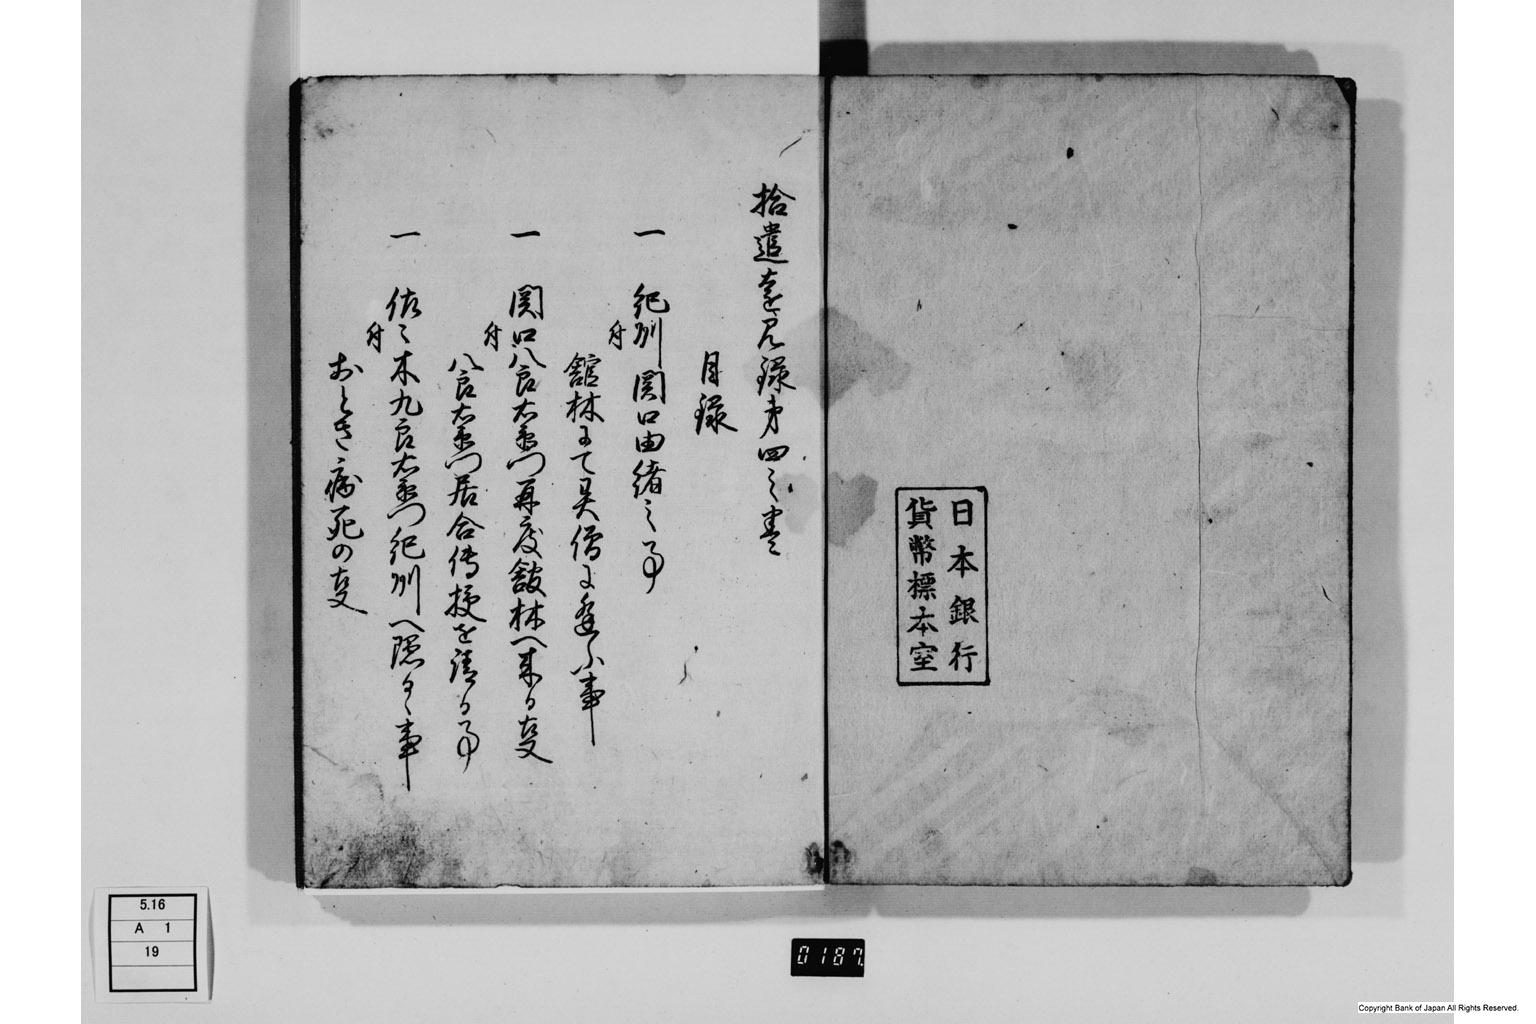 日本銀行
貨幣標本室
拾遺遠見録第四之巻
目録
一 紀州関口由緒之事
付 舘林にて異僧に逢ふ事
一 関口八郎右衛門再度舘林へ来る事
付 八郎右衛門居合伝授を請る事
一 佐々木九郎右衛門紀州へ隠るゝ事
付 おときﾞ病死の事
5.16
A 1
19
0187
Copyright Bank of Japan All Rights Reserved.